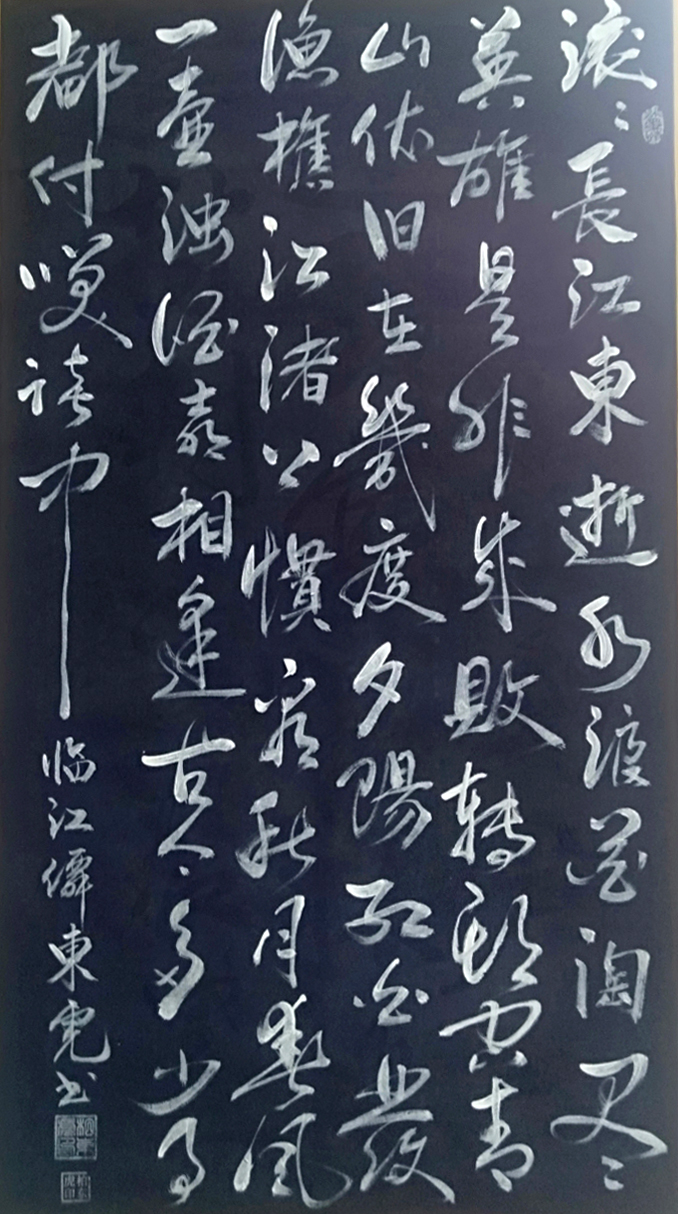 滚〻長江東逝水浪花淘尽
英雄是非成敗转頭空青
山依旧在幾度夕陽红白髮
渔樵江渚上慣看秋月春風
一壶浊酒喜相逢古今多少事
都付咲談中 临江僊東虎书